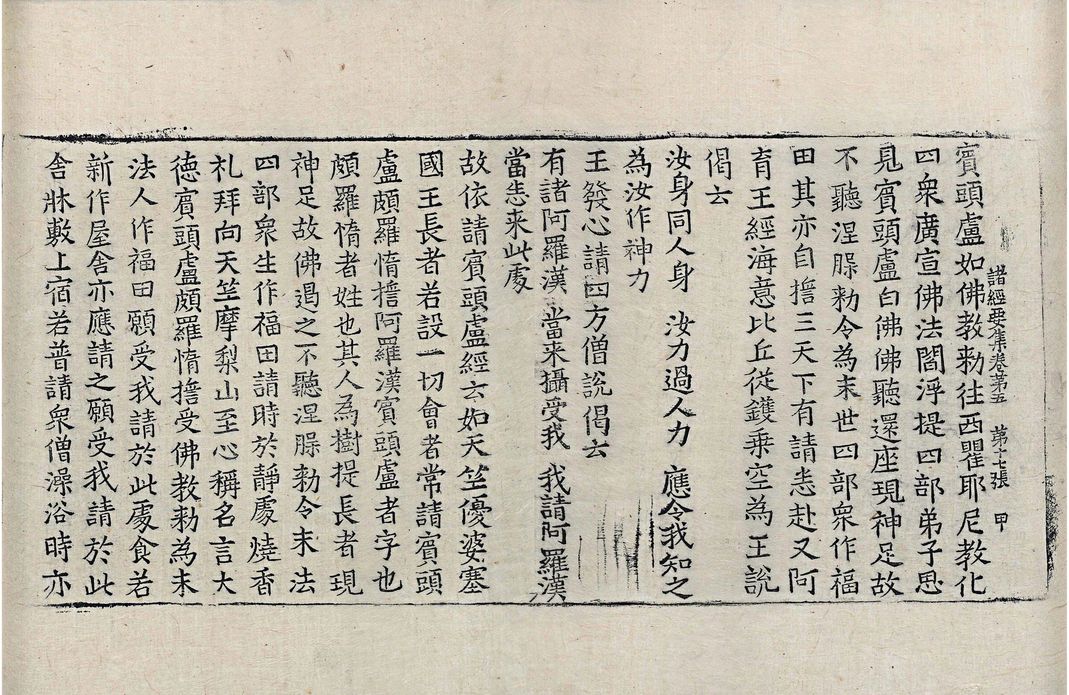 諸經要集卷第五 第十七張 甲
賓頭盧如佛教勑往西瞿耶尼教化
四衆廣宣佛法閻浮提四部弟子思
見賓頭盧白佛佛聽還座現神足故
不聽涅膖勑令為末世四部衆作福
田其亦自擔三天下有請悉赴又阿
育王經海意比丘從鑊乗空為王說
偈云
汝身同人身 汝力過人力 應令我知之
為汝作神力
王發心請四方僧說偈云
有諸阿羅漢 當来攝受我 我請阿羅漢
當悉来此處
故依請賓頭盧經云如天竺優婆塞
國王長者若設一切會者常請賓頭
盧頗羅惰擔阿羅漢賓頭盧者字也
頗羅惰者姓也其人為樹提長者現
神足故佛遏之不聽涅膖勑令末法
四部衆生作福田請時於靜處燒香
礼拜向天竺摩梨山至心稱名言大
德賓頭盧頗羅惰擔受佛教勑為末
法人作福田願受我請於此處食若
新作屋舍亦應請之願受我請於此
舍牀敷上宿若普請衆僧澡浴時亦